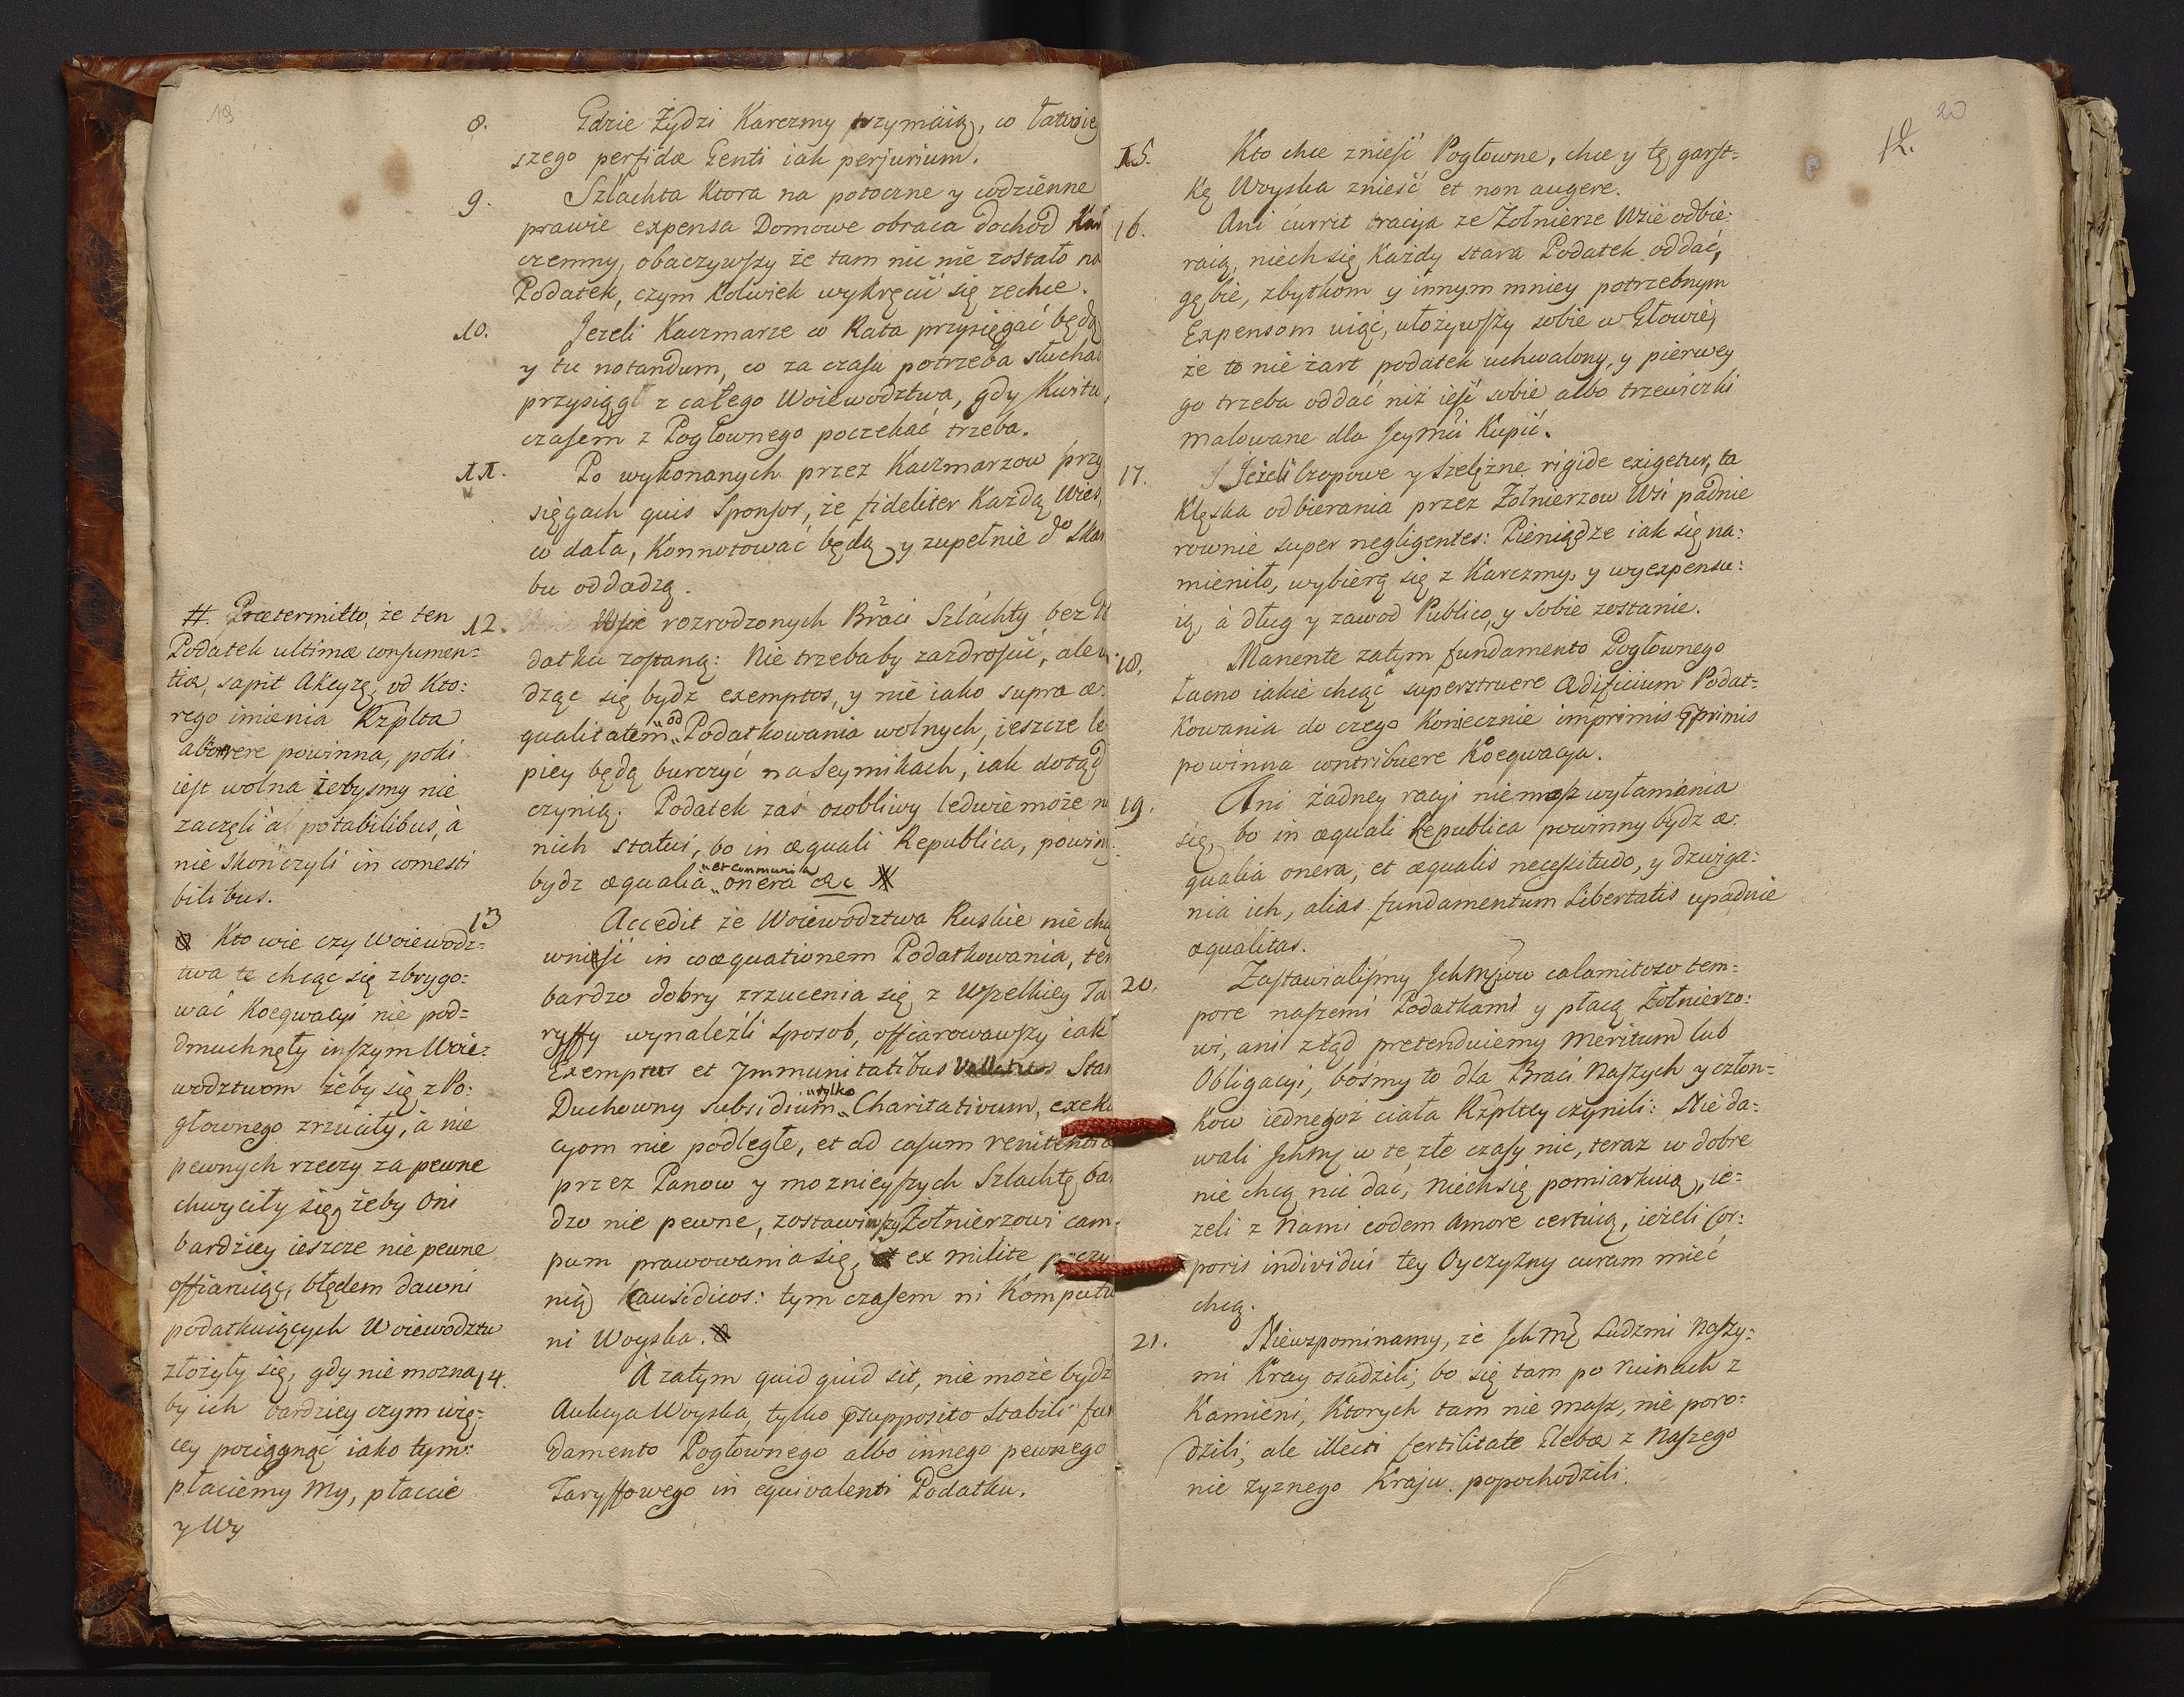 19
8. Gdzie Żydzi Karczmy trzymaią, co łatwiey
szego perfidæ Genti iak perjurium.
9. Szlachta Ktora na potoczne y codzienne
prawie expensa Domowe obraca dochod Kar
czemny, obaczywszy że tam nic nie zostało na
Podatek, czym kolwiek wykręcić się zechce.
10. Jezeli Kaczmarze co Rata przysięgać będą
y tu notandum, co za czasu potrzeba słuchać
przysiągł z całego Woiewodztwa, gdy Kwitu
czasem z Pogłownego poczekać trzeba.
11. Po wykonanych przez Kaczmarzow przy
sięgach quis Sponsor, że fideliter Każdą Wieś,
co dała, Konnotować będą, y zupełnie do Skar
bu oddadzą.
12. Wsie rozrodzonych Braci Szlachty bez Po
datku zostaną: Nie trzebaby zazdrościć, ale
dząc się bydz exemptos, y nie iako supra æ
qualitatem od Podatkowania wolnych, ieszcze le
piey będą burczyć na Seymikach, iak dotąd
czynią. Podatek zaś osobliwy ledwie może
nich statui, bo in æquali Republica, powinny
bydz æqualia et communia onera &c #
13 Accedit że Woiewodztwa Ruskie nie chcą
wnieść in coæquationem Podatkowania, ten
bardzo dobry zrzucenia się z Wszelkiey Ta
ryffy wynaleźli sposob, offiarowawszy iak
Exemptus et Immunitatibus Stan
Duchowny subsidium tylko Charitativum, exeku
cyom nie podległe, et ad casum renitentiæ
przez Panow y moznieyszych Szlachtę bar
dzo nie pewne, zostawiwszy Żołnierzowi cam
pum prawowania się, ex milite poczy
nią Causidicos: tym czasem ni Komputu
ni Woyska.
14. A zatym quid quid sit, nie może bydz
Aukcya Woyska, tylko supposito stabili fun
damento Pogłownego albo innego pewnego
Taryffowego in equivalenti Podatku.
# Prætermitto, że ten
Podatek ultimæ consumen=
tiæ, sapit Akcyzę, od Kto:
rego imienia Rzplta
abhorrere powinna, poki
iest wolna żebysmy nie
zaczęli a potabilibus, à
nie skończyli in comesti
bilibus.
Kto wie czy Woiewodz=
twa te chcąc się zbrygo:
wać Koegwacyi nie pod=
dmuchnęły inszym Woie:
wodztwom żeby się z Po:
głownego zrzuciły, à nie
pewnych rzeczy za pewne
chwyciły się, żeby oni
bardziey ieszcze nie pewne
offiaruiąc, błędem dawni
podatkuiących Woiewodztw
złożyły się, gdy nie mozna
by ich bardziey czym wię=
cey pociągnąć iako tym:
płaciemy My, płaccie
y Wy
20
12.
15. Kto chce znieść Pogłowne, chce y tę garst=
kę Woyska znieść et non augere.
16. Ani currit racyja ze Żołnierze Wsie odbie:
raią, niech się Każdy stara Podatek oddać,
gębie, zbytkom y innym mniey potrzebnym
Expensom uiąć, ułożywszy sobie w Głowie,
że to nie żart podatek uchwalony, y pierwey
go trzeba oddać niż ieść sobie albo trzewiczki
malowane dla Jeymci Kupić.
17. Jeżeli Czopowe y Szelężne rigide exigetur, ta
Klęska odbierania przez Żołnierzow Wsi padnie
rownie super negligentes: Pieniądze iak się na:
mieniło, wybierą się z Karczmy, y wyexpensu:
ią, à dług y zawod Publico, y sobie zostanie.
18. Manente zatym fundamento Pogłownego
łacno iakie chcąc superstruere Ædificium Podat=
kowania do czego Koniecznie imprimis & primis
powinna contribuere Koegwacya.
19. Ani żadney racyi niemasz wyłamania
się, bo in æquali Republica powinny bydz æ:
qualia onera, et æqualis necessitudo, y dzwiga:
nia ich, alias fundamentum Libertatis upadnie
æqualitas.
20. Zastawialismy Jchmciow calamitoso tem=
pore naszemi Podatkami y płacą Żołnierzo:
wi, ani ztąd pretenduiemy Meritum lub
Obligacyi, bośmy to dla Braci Naszych y człon=
kow iednegoż ciała Rzpltey czynili: Nie da=
wali Jchmć w te złe czasy nic, teraz w dobre
nie chcą nic dać, niech się pomiarkuią, ie=
zeli z Nami eodem Amore certuią, ieżeli Cor:
poris individui tey Oyczyzny curam mieć
chcą.
21. Niewspominamy, że Jchmć Ludzmi Naszy=
mi Kray osadzili; bo się tam po Ruinach z
Kamieni, Ktorych tam nie masz, nie poro=
dzili; ale illecti fertilitate Glebæ z Naszego
nie zyznego Kraju popochodzili.